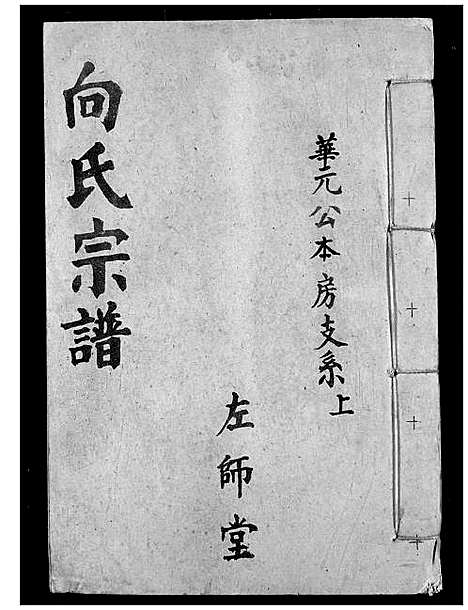 華元公本房支系上
左師堂
向氏宗譜